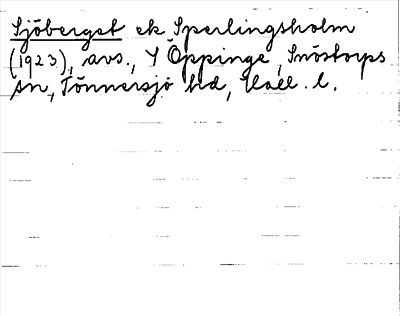 Sjöberget ek Sperlingsholm
(1923), avs., Y Öppinge, Snöstorps
sn, Tönnersjö hd, Hall. l.